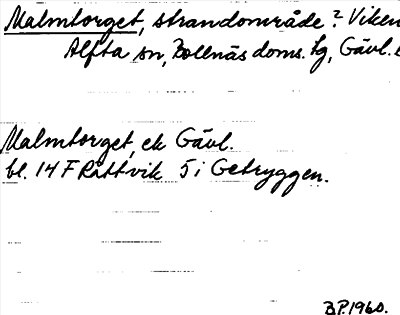 Malmtorget, strandområde? Viken
Alfta sn, Bollnäs doms. tg, Gävl.
Malmtorget, ek Gävl.
bl. 14 F Rättvik 5 i Getryggen.
B.P. 1960.